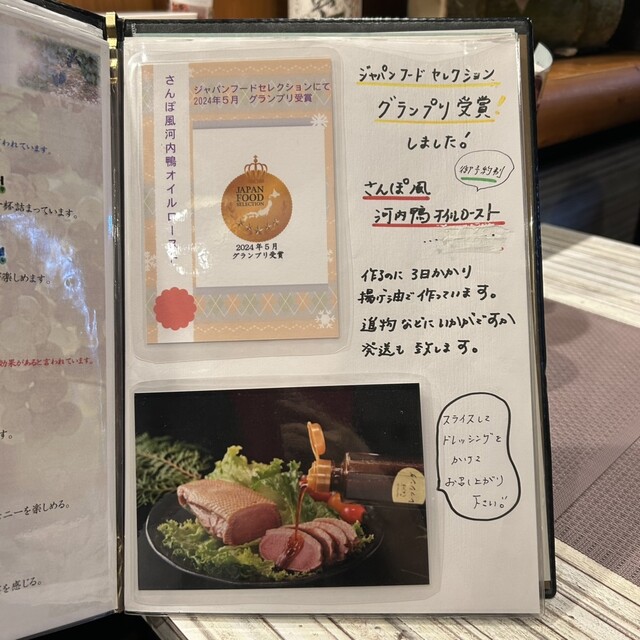 言われています。
詰まっています。
楽しめます。
効果があると言われています。
す。
モニーを楽しめる。
を感じる。
さんぽ風河内鴨オイルロースト
ジャパンフードセレクションにて
2024年5月 グランプリ受賞
JAPAN
FOOD
SELECTION
2024年5月
グランプリ受賞
ジャパンフードセレクション
グランプリ受賞!
しました!
さんぽ風
河内鴨オイルロースト
作るのに3日かかり
揚げ油で作っています。
進物などにいかがですか
発送も致します。
スライスして
ドレッシングを
かけて
お召し上がり
下さい!!